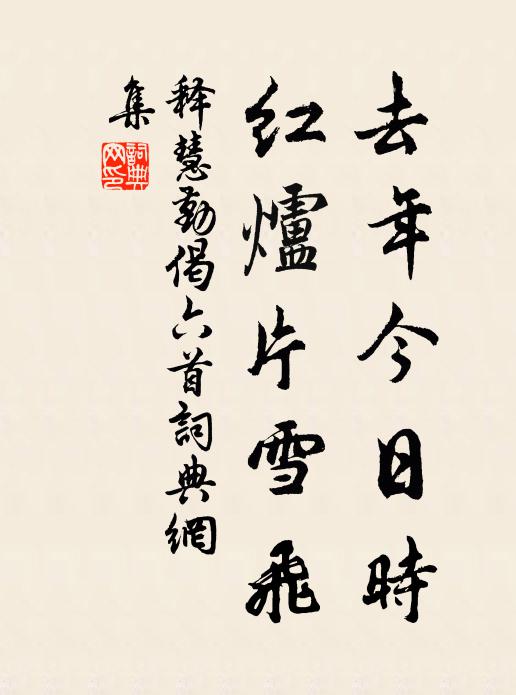 去年今日時
紅爐片雪飛
释慧勤偈六首詞典網
集
詞典
网印